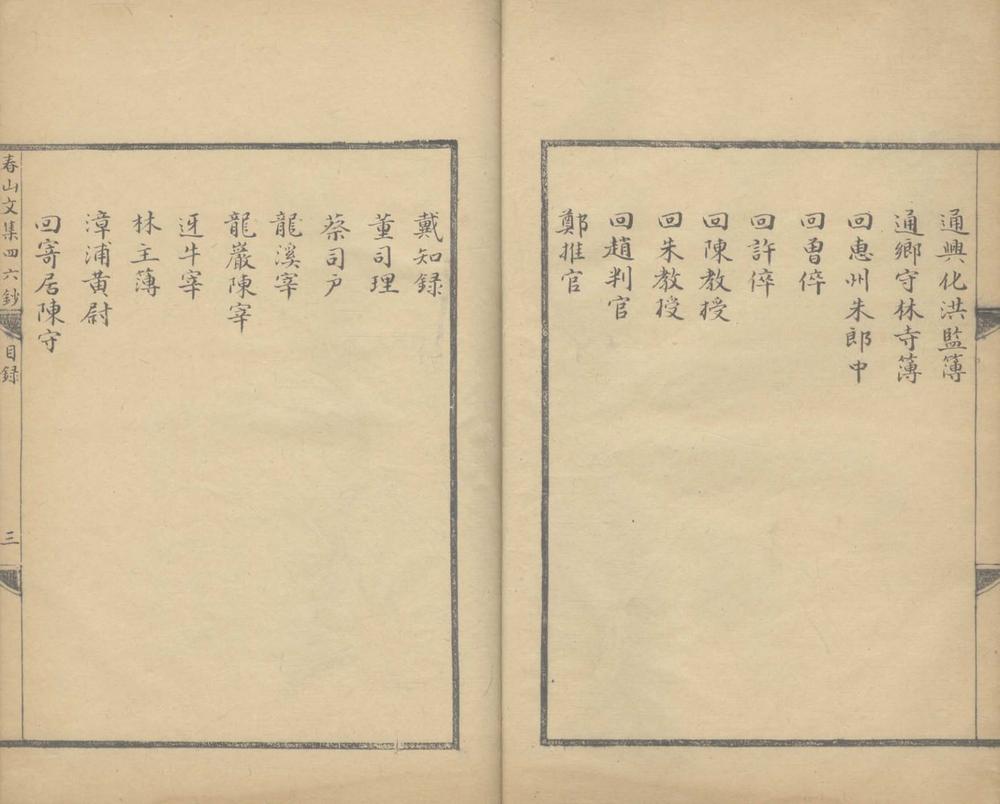 通興化洪監簿
通鄉守林寺簿
回惠州朱郎中
回曽倅
回許倅
回陳教授
回朱教授
回趙判官
鄭推官
戴知録
董司理
蔡司户
龍溪宰
龍巖陳宰
迓牛宰
林主薄
漳浦黃尉
回寄居陳守
春山文集四六鈔
目録
三